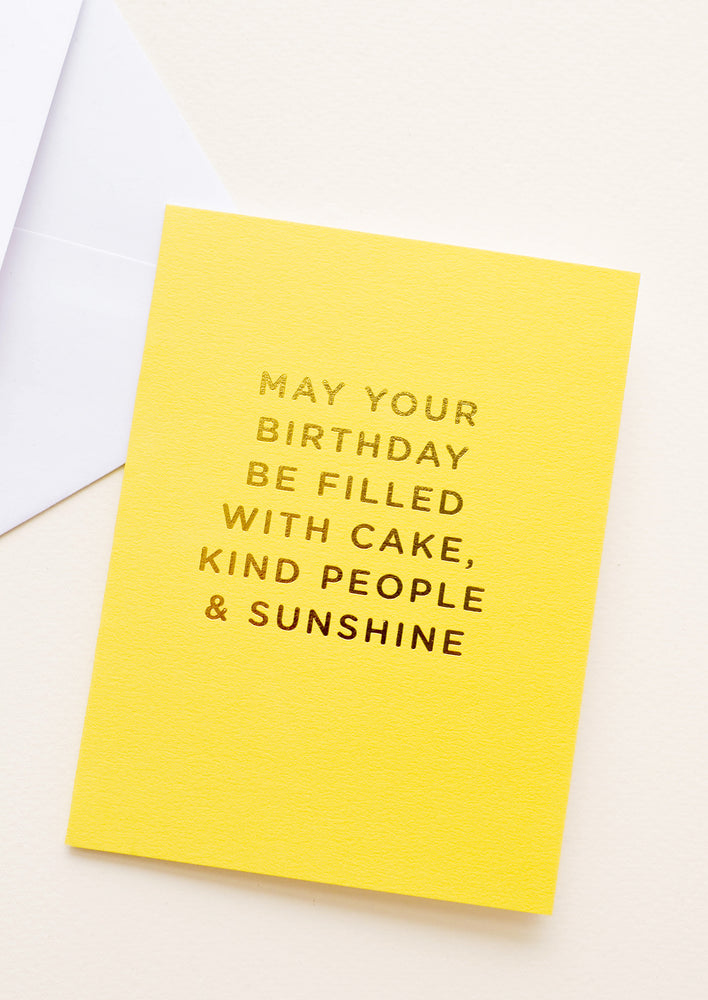 MAY YOUR
BIRTHDAY
BE FILLED
WITH CAKE,
KIND PEOPLE
& SUNSHINE